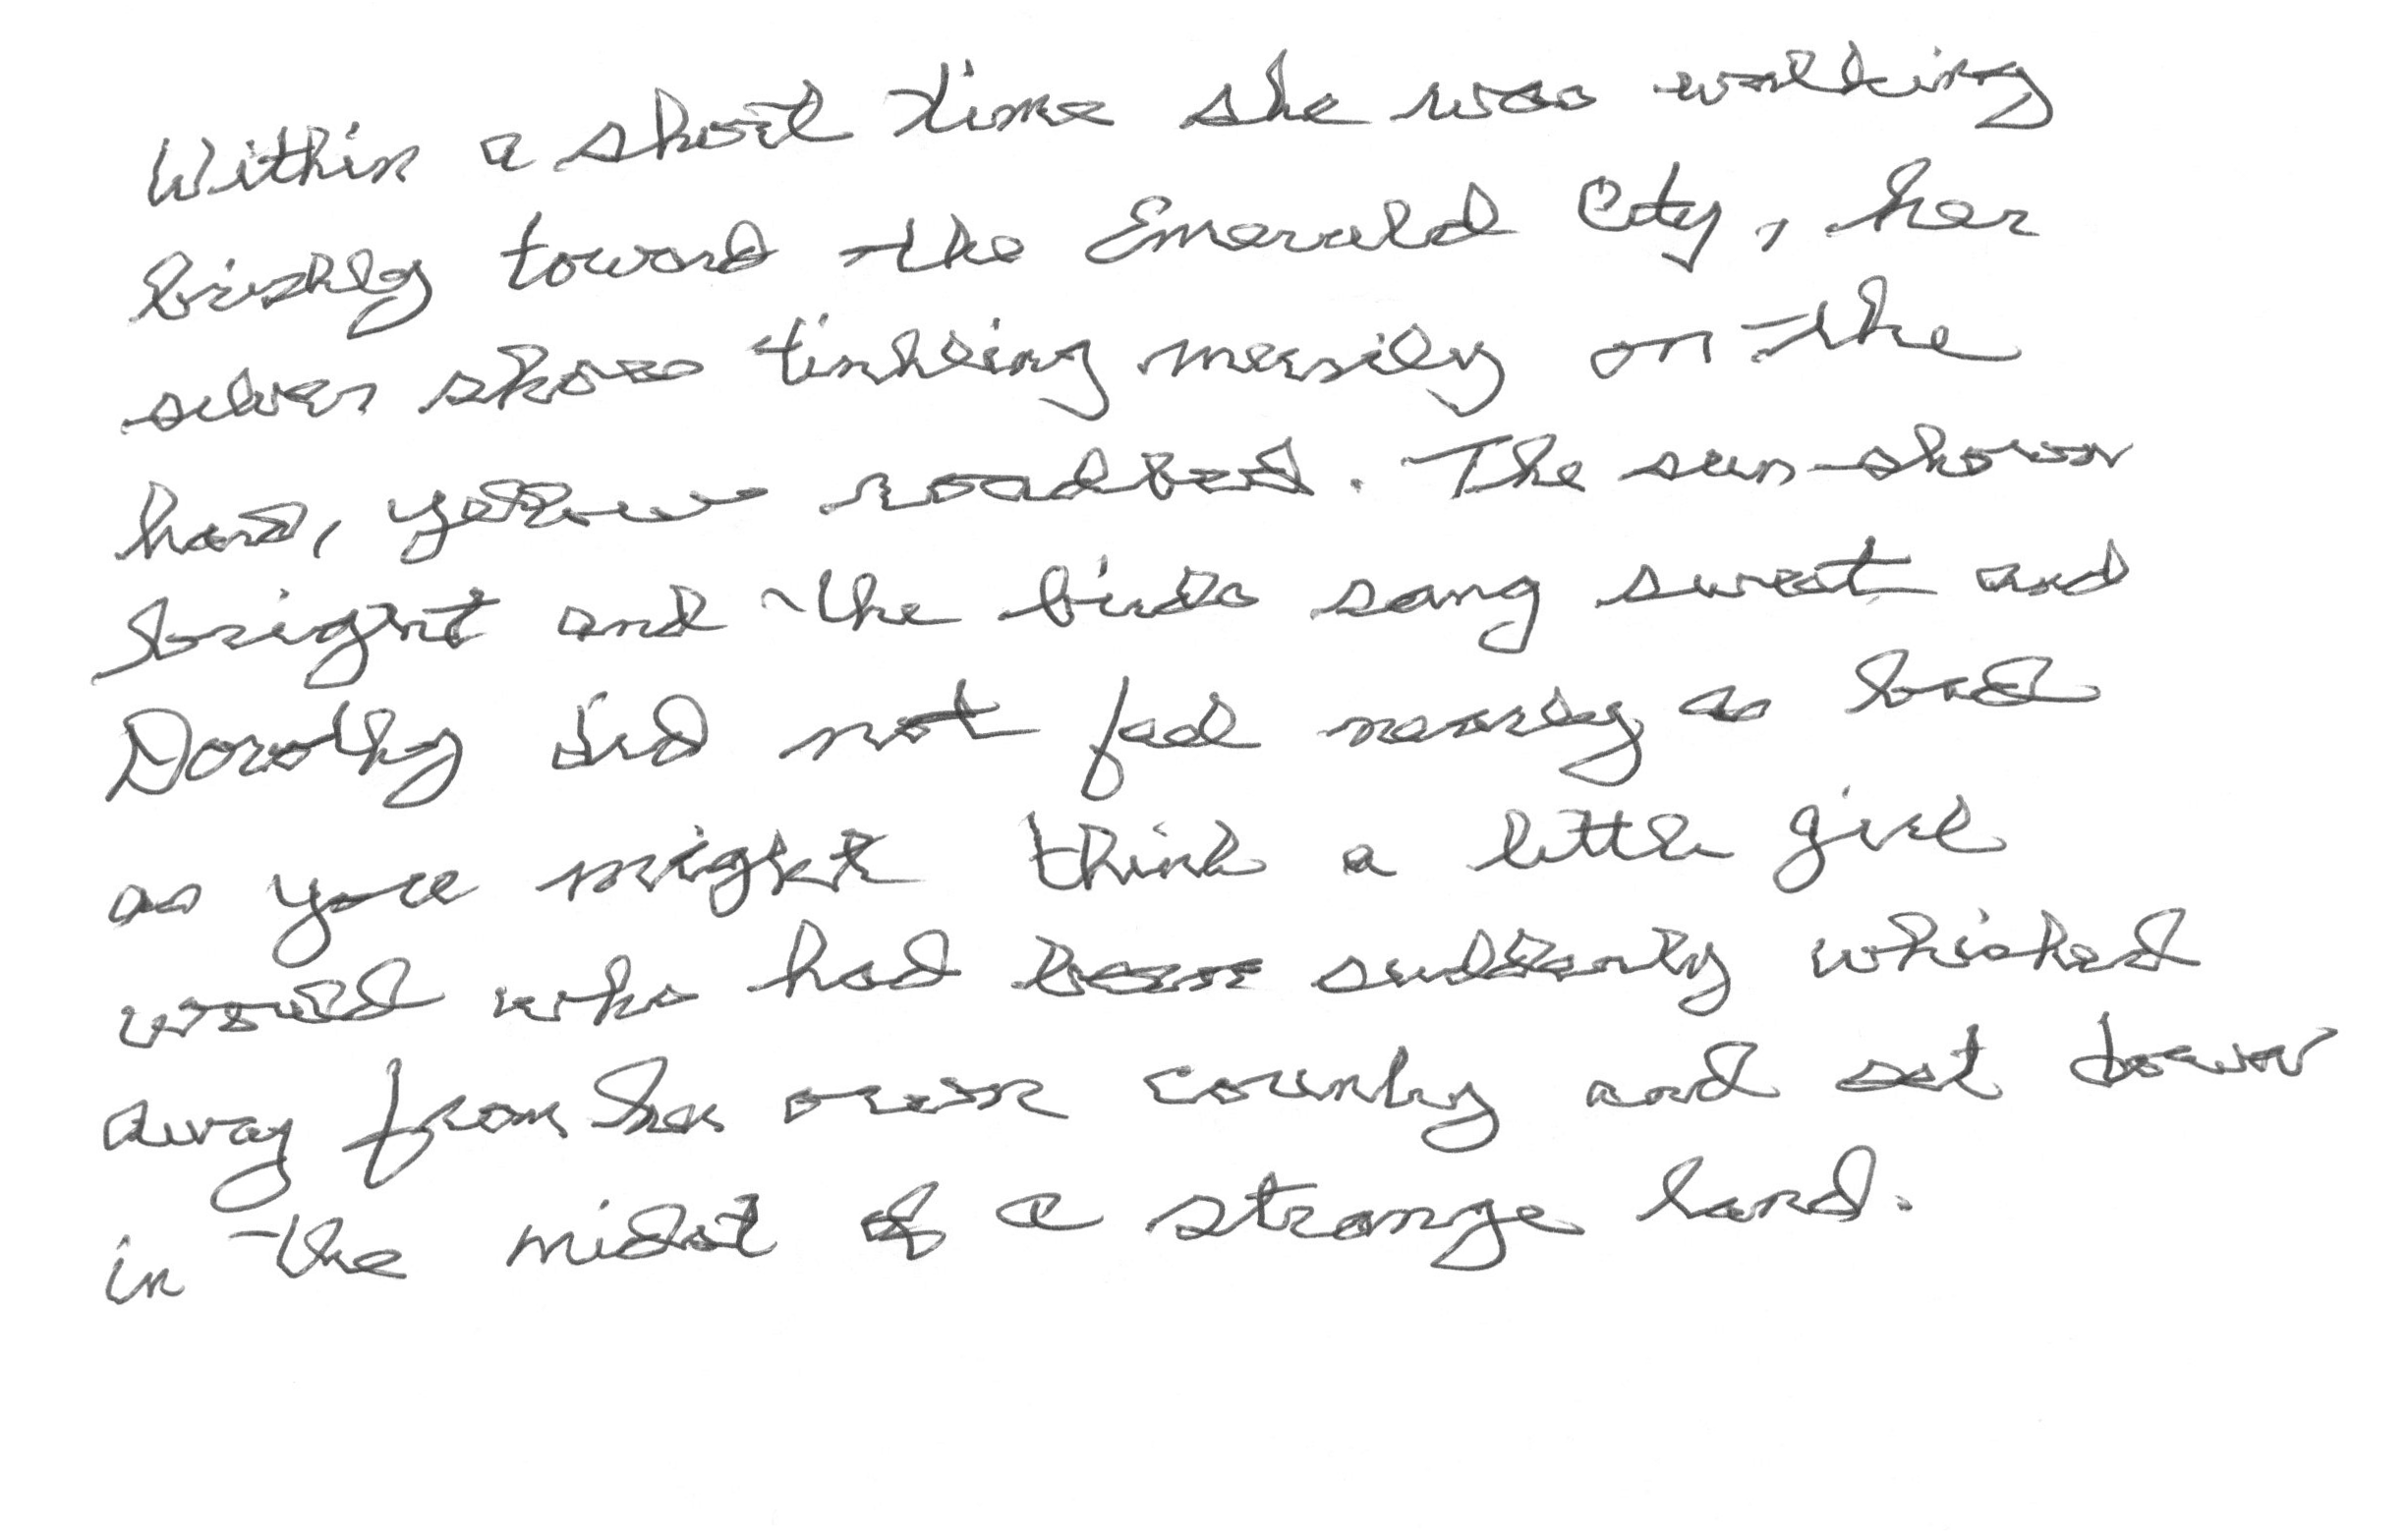 Within a short time she was walking
briskly toward the Emerald City, her
silver shoes tinkling merrily on the
hard, yellow roadbed. The sun shown
bright and the birds sang sweet and
Dorothy did not feel nearly as bad
as you might think a little girl
would who had been suddenly whisked
away from her own country and set down
in the midst of a strange land.